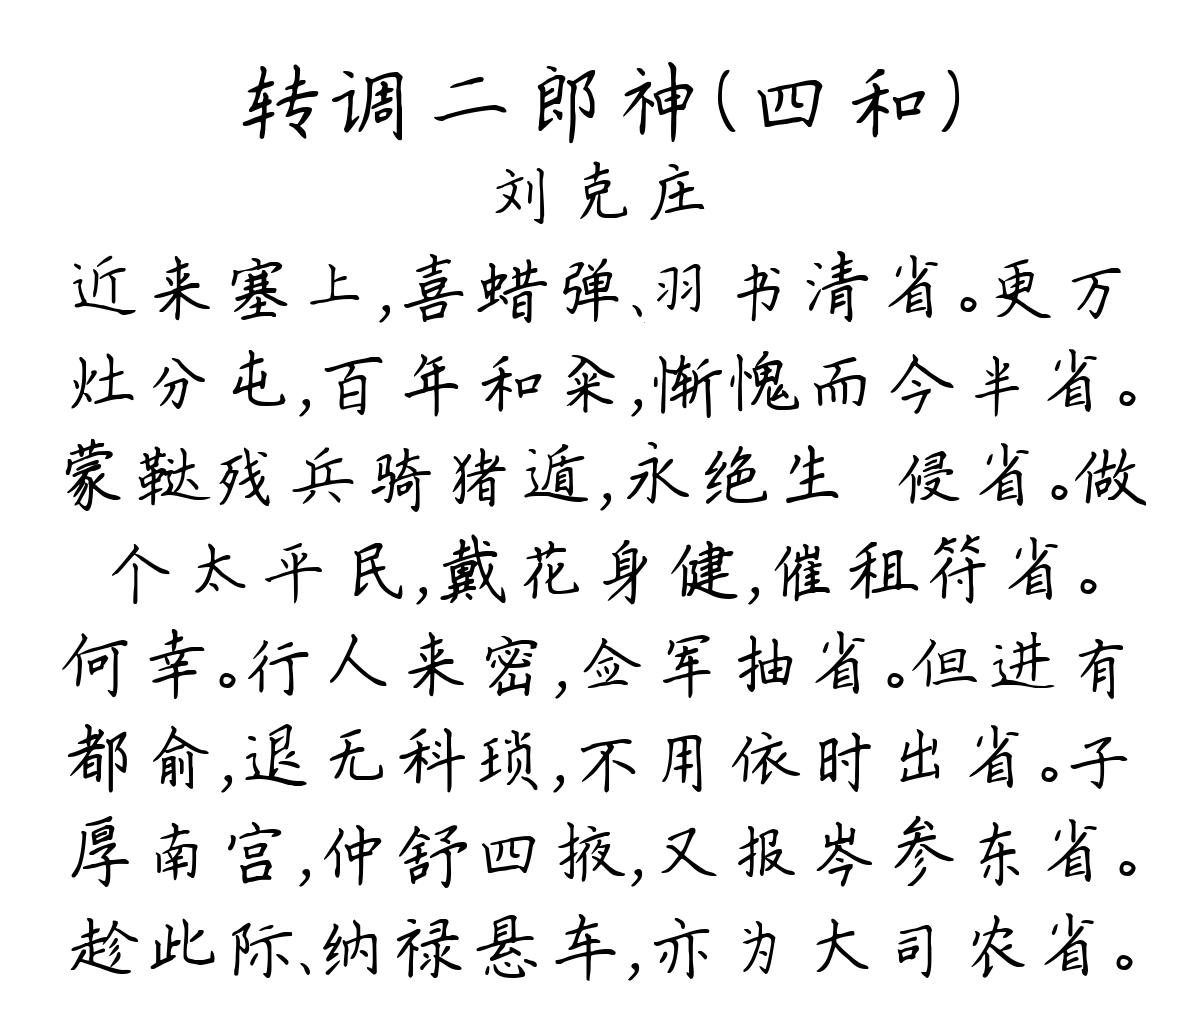 转调二郎神(四和)
刘克庄
近来塞上,喜蜡弹、羽书清省。更万
灶分屯,百年和籴,惭愧而今半省。
蒙鞑残兵骑猪遁,永绝生 侵省。做
个太平民,戴花身健,催租符省。
何幸。行人来密,佥军抽省。但进有
都俞,退无科琐,不用依时出省。子
厚南宫,仲舒四掖,又报岑参东省。
趁此际、纳禄悬车,亦为大司农省。